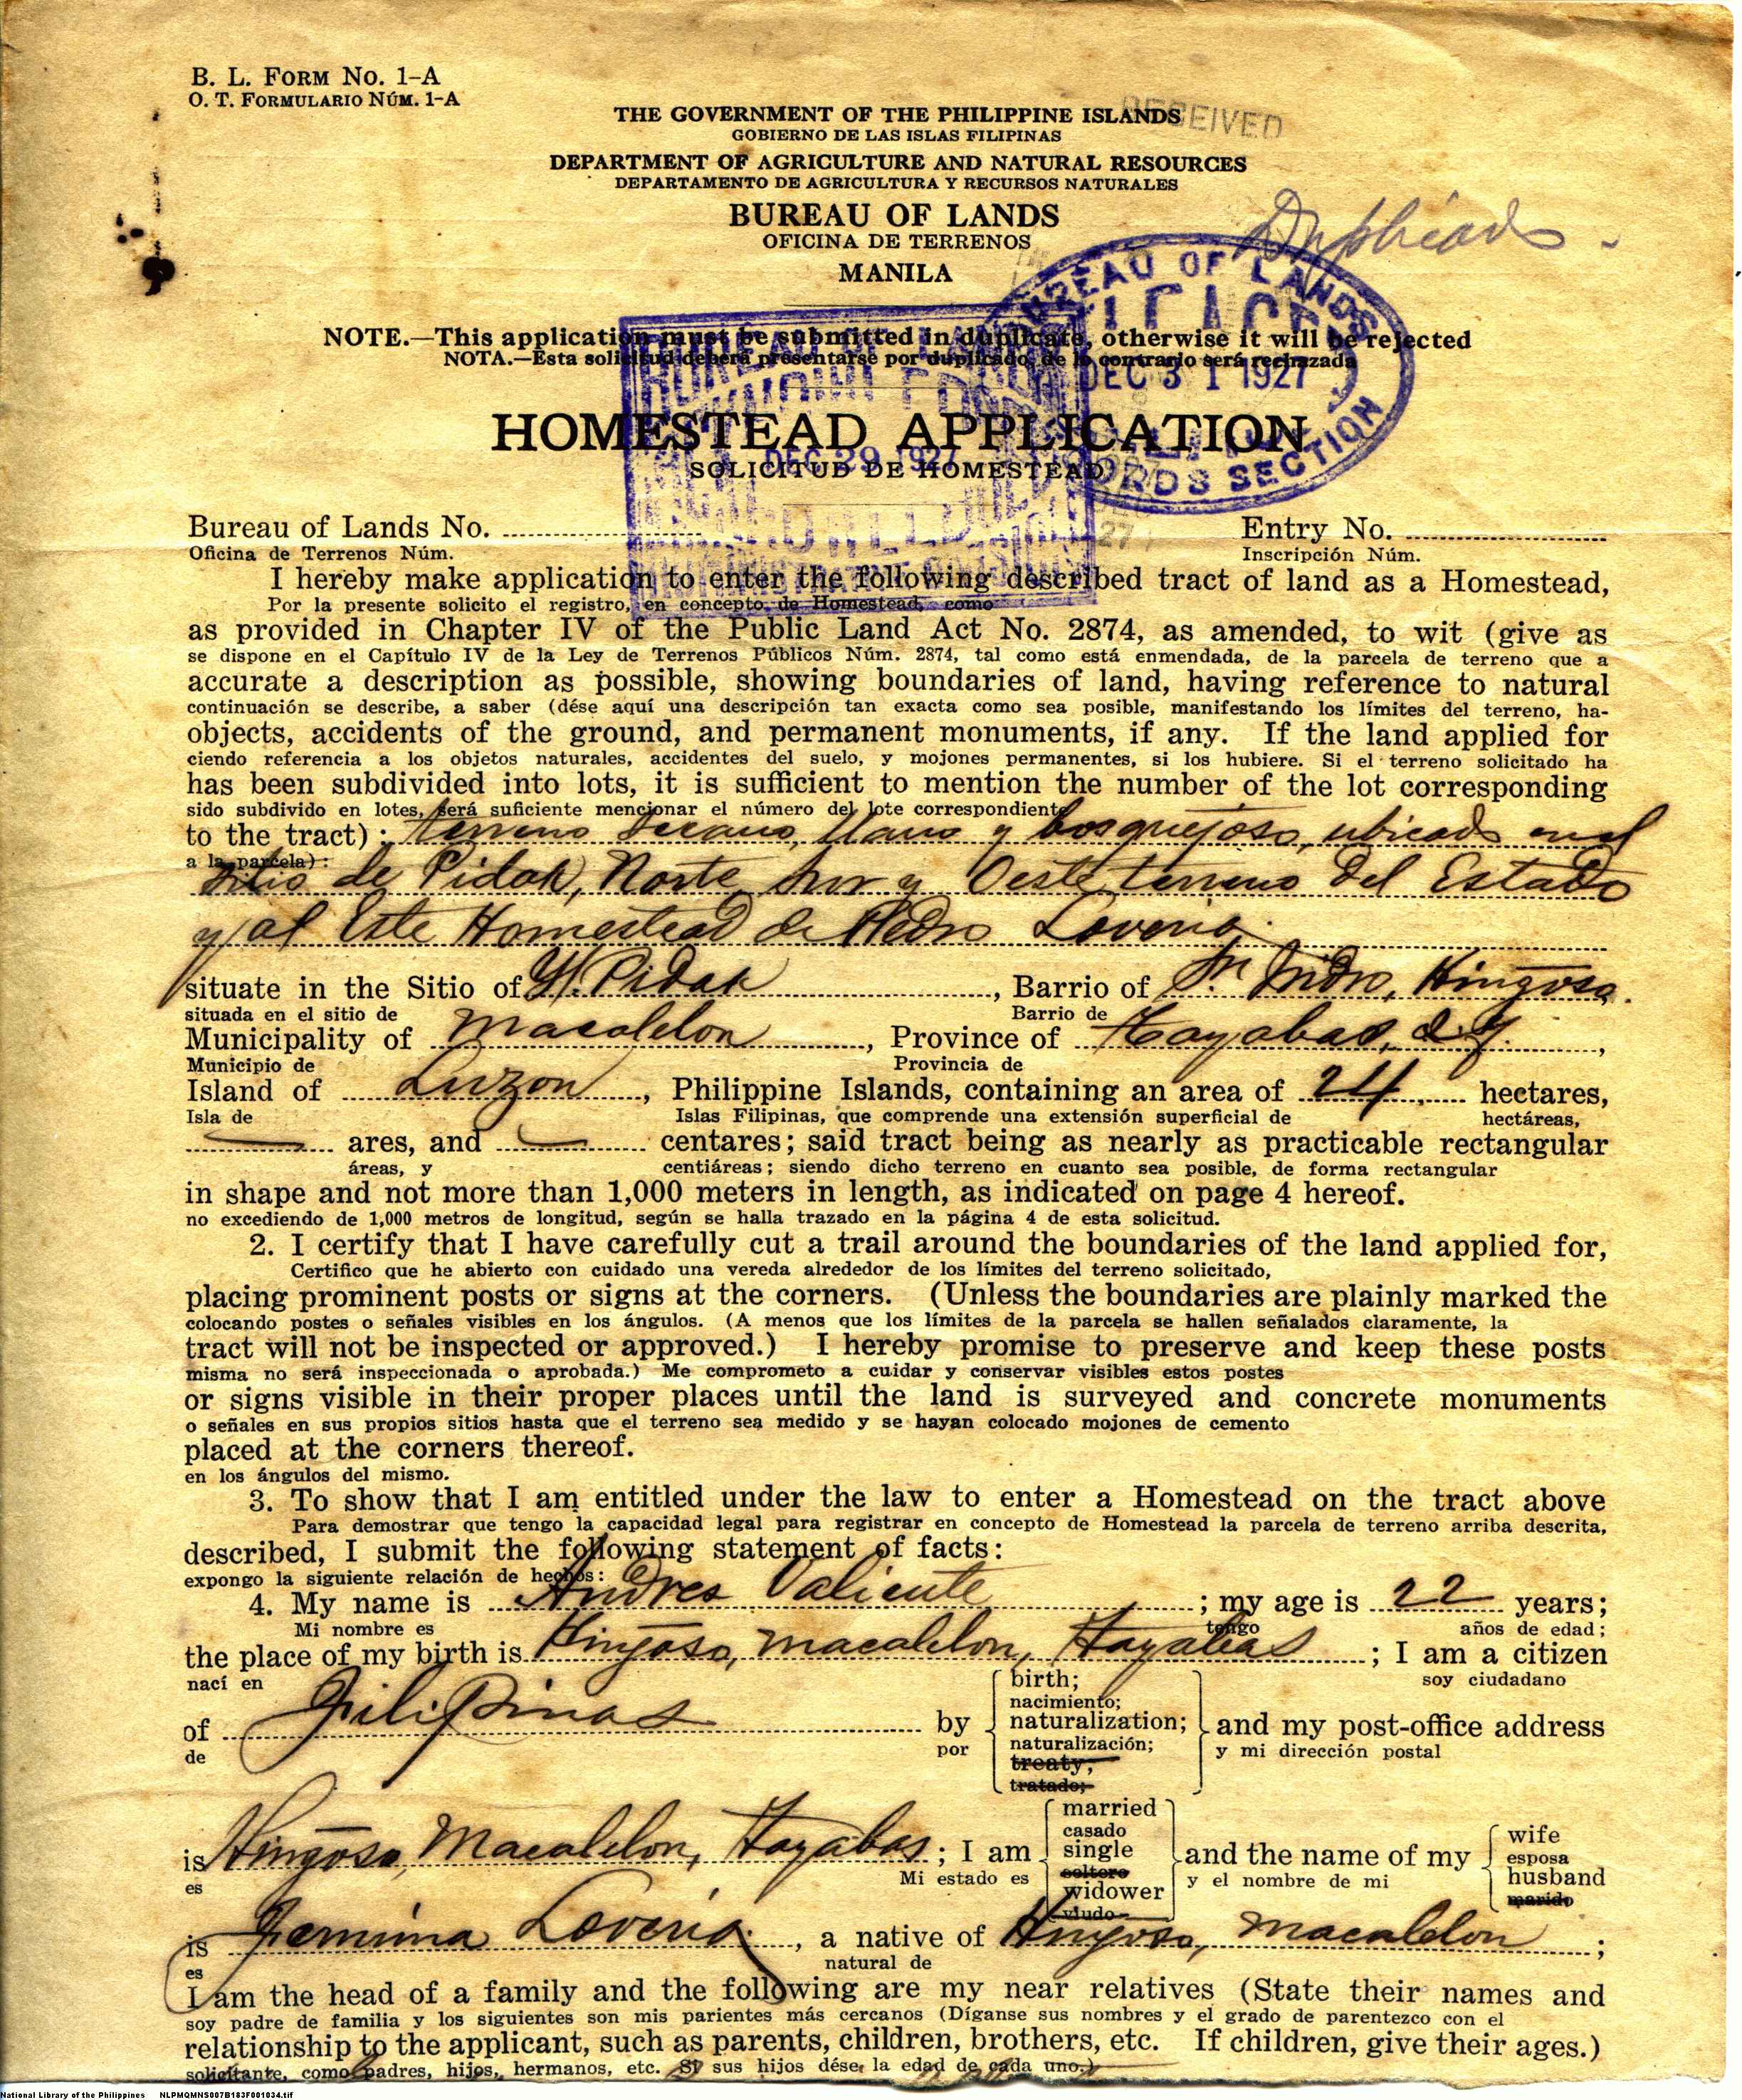 B. L. FORM NO. 1–A
O. T. FORMULARIO NÚM. 1–A
RECEIVED
THE GOVERNMENT OF THE PHILIPPINE ISLANDS
GOBIERNO DE LAS ISLAS FILIPINAS
DEPARTMENT OF AGRICULTURE AND NATURAL RESOURCES
DEPARTAMENTO DE AGRICULTURA Y RECURSOS NATURALES
BUREAU OF LANDS
OFICINA DE TERRENOS
MANILA
BUREAU OF LANDS
DEC 31 1927
RECORDS SECTION
NOTE.—This application must be submitted in duplicate, otherwise it will be rejected
NOTA.—Esta solicitud deberá presentarse por duplicado, de lo contrario será rechazada
BUREAU OF LANDS
DEC 29 1927
HOMESTEAD APPLICATION
SOLICITUD DE HOMESTEAD
Bureau of Lands No. Entry No.
Oficina de Terrenos Núm. Inscripción Núm.
I hereby make application to enter the following described tract of land as a Homestead,
Por la presente solicito el registro, en concepto de Homestead, como
as provided in Chapter IV of the Public Land Act No. 2874, as amended, to wit (give as
se dispone en el Capítulo IV de la Ley de Terrenos Públicos Núm. 2874, tal como está enmendada, de la parcela de terreno que a
accurate a description as possible, showing boundaries of land, having reference to natural
continuación se describe, a saber (dése aquí una descripción tan exacta como sea posible, manifestando los límites del terreno, ha-
objects, accidents of the ground, and permanent monuments, if any. If the land applied for
ciendo referencia a los objetos naturales, accidentes del suelo, y mojones permanentes, si los hubiere. Si el terreno solicitado ha
has been subdivided into lots, it is sufficient to mention the number of the lot corresponding
sido subdivido en lotes, será suficiente mencionar el número del lote correspondiente
to the tract): terreno secano, llano y bosquejoso, ubicado en el
a la parcela):
sitio de Pidak, Norte, Sur y Oeste terreno del Estado
y al Este Homestead de Pedro Loveria.
situate in the Sitio of Pidak, Barrio of Sn. Isidro, Hingoso.
situada en el sitio de Barrio de
Municipality of Macalelon, Province of Tayabas,
Municipio de Provincia de
Island of Luzon, Philippine Islands, containing an area of 24 hectares,
Isla de Islas Filipinas, que comprende una extensión superficial de hectáreas,
ares, and centares; said tract being as nearly as practicable rectangular
áreas, y centiáreas; siendo dicho terreno en cuanto sea posible, de forma rectangular
in shape and not more than 1,000 meters in length, as indicated on page 4 hereof.
no excediendo de 1,000 metros de longitud, según se halla trazado en la página 4 de esta solicitud.
2. I certify that I have carefully cut a trail around the boundaries of the land applied for,
Certifico que he abierto con cuidado una vereda alrededor de los límites del terreno solicitado,
placing prominent posts or signs at the corners. (Unless the boundaries are plainly marked the
colocando postes o señales visibles en los ángulos. (A menos que los límites de la parcela se hallen señalados claramente, la
tract will not be inspected or approved.) I hereby promise to preserve and keep these posts
misma no será inspeccionada o aprobada.) Me comprometo a cuidar y conservar visibles estos postes
or signs visible in their proper places until the land is surveyed and concrete monuments
o señales en sus propios sitios hasta que el terreno sea medido y se hayan colocado mojones de cemento
placed at the corners thereof.
en los ángulos del mismo.
3. To show that I am entitled under the law to enter a Homestead on the tract above
Para demostrar que tengo la capacidad legal para registrar en concepto de Homestead la parcela de terreno arriba descrita,
described, I submit the following statement of facts:
expongo la siguiente relación de hechos:
4. My name is Andres Valiente; my age is 22 years;
Mi nombre es tengo años de edad;
the place of my birth is Hingoso, Macalelon, Tayabas; I am a citizen
nací en soy ciudadano
of Filipinas by birth; nacimiento; naturalization; naturalización; treaty; tratado; and my post-office address
de por y mi dirección postal
is Hingoso, Macalelon, Tayabas; I am married casado single soltero widower viudo and the name of my wife esposa husband marido
es Mi estado es y el nombre de mi
is Fermina Loveria, a native of Hingoso, Macalelon;
es natural de
I am the head of a family and the following are my near relatives (State their names and
soy padre de familia y los siguientes son mis parientes más cercanos (Díganse sus nombres y el grado de parentezco con el
relationship to the applicant, such as parents, children, brothers, etc. If children, give their ages.)
solicitante, como padres, hijos, hermanos, etc. Si sus hijos dése la edad de cada uno.)
National Library of the Philippines NLPMQMNS007B183F001034.tif